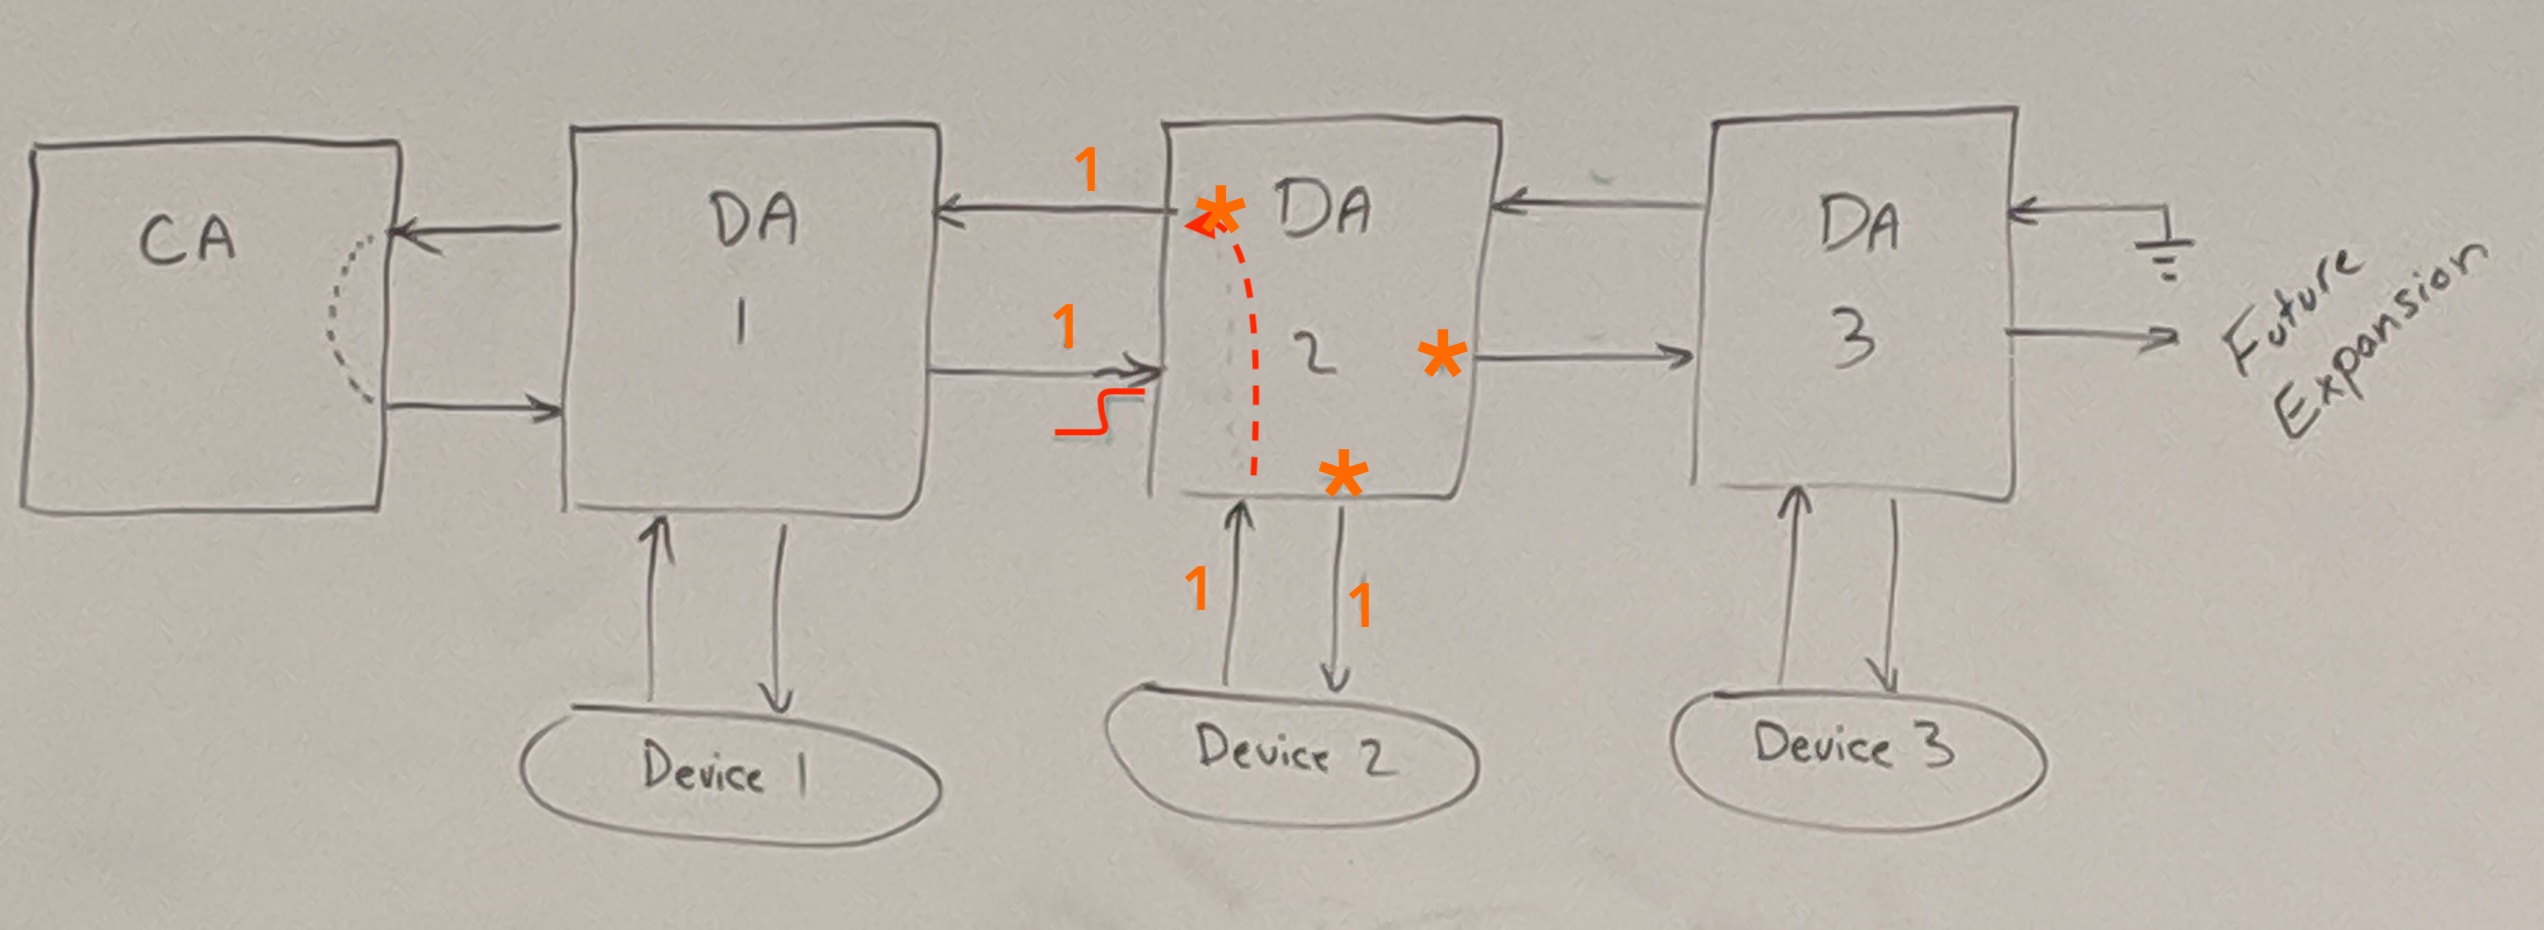 CA
DA
1
1
1
*
DA
2
*
*
DA
3
Future
Expansion
1
1
Device 1
Device 2
Device 3